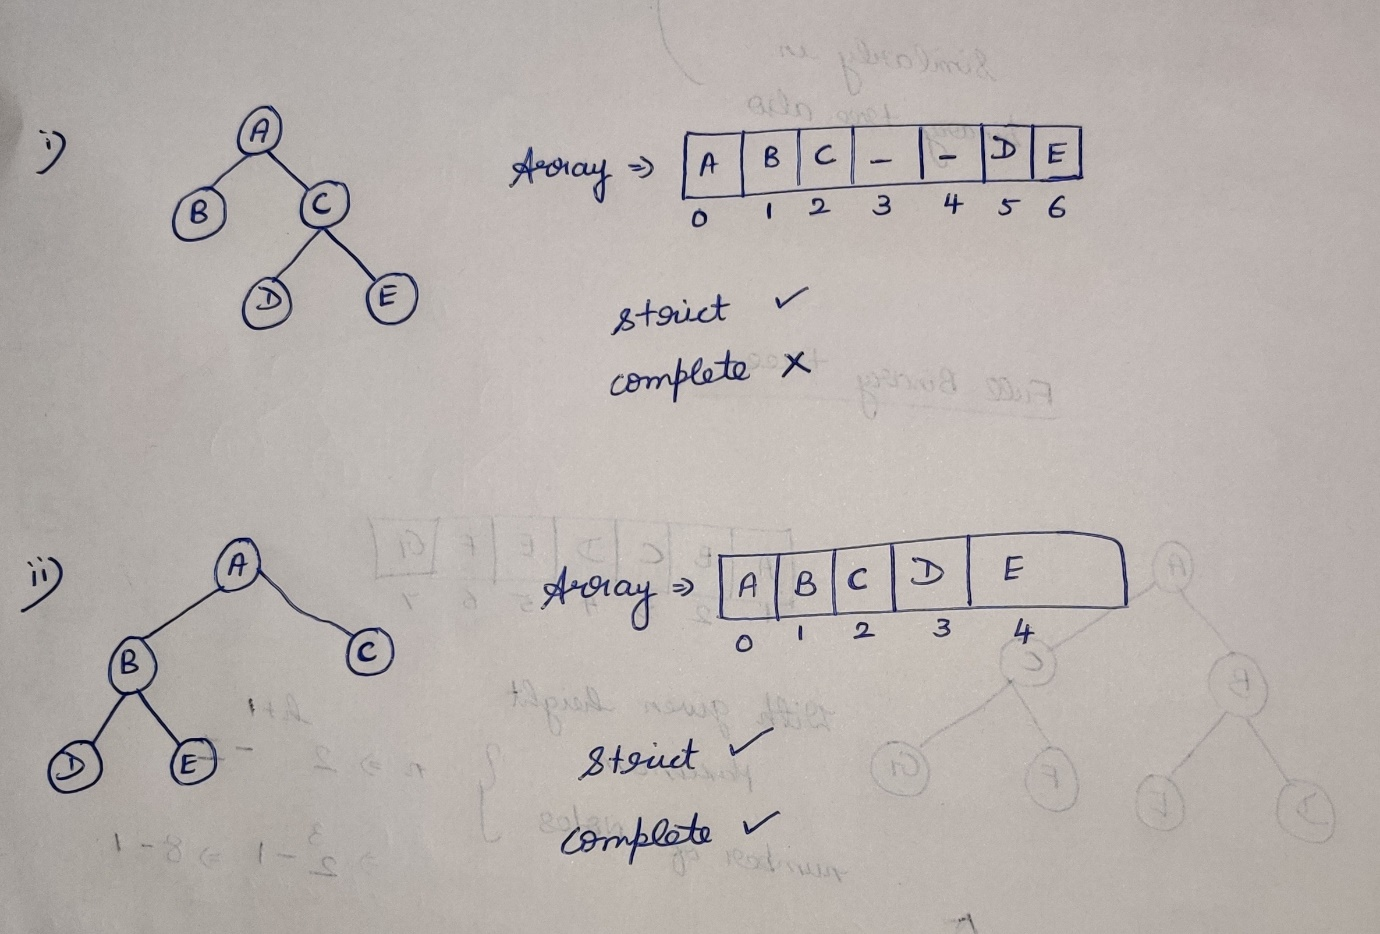 i)
A
B C
D E
Array ⇒ A B C – – D E
0 1 2 3 4 5 6
strict ✓
complete ×
ii)
A
B C
D E
Array ⇒ A B C D E
0 1 2 3 4
strict ✓
complete ✓